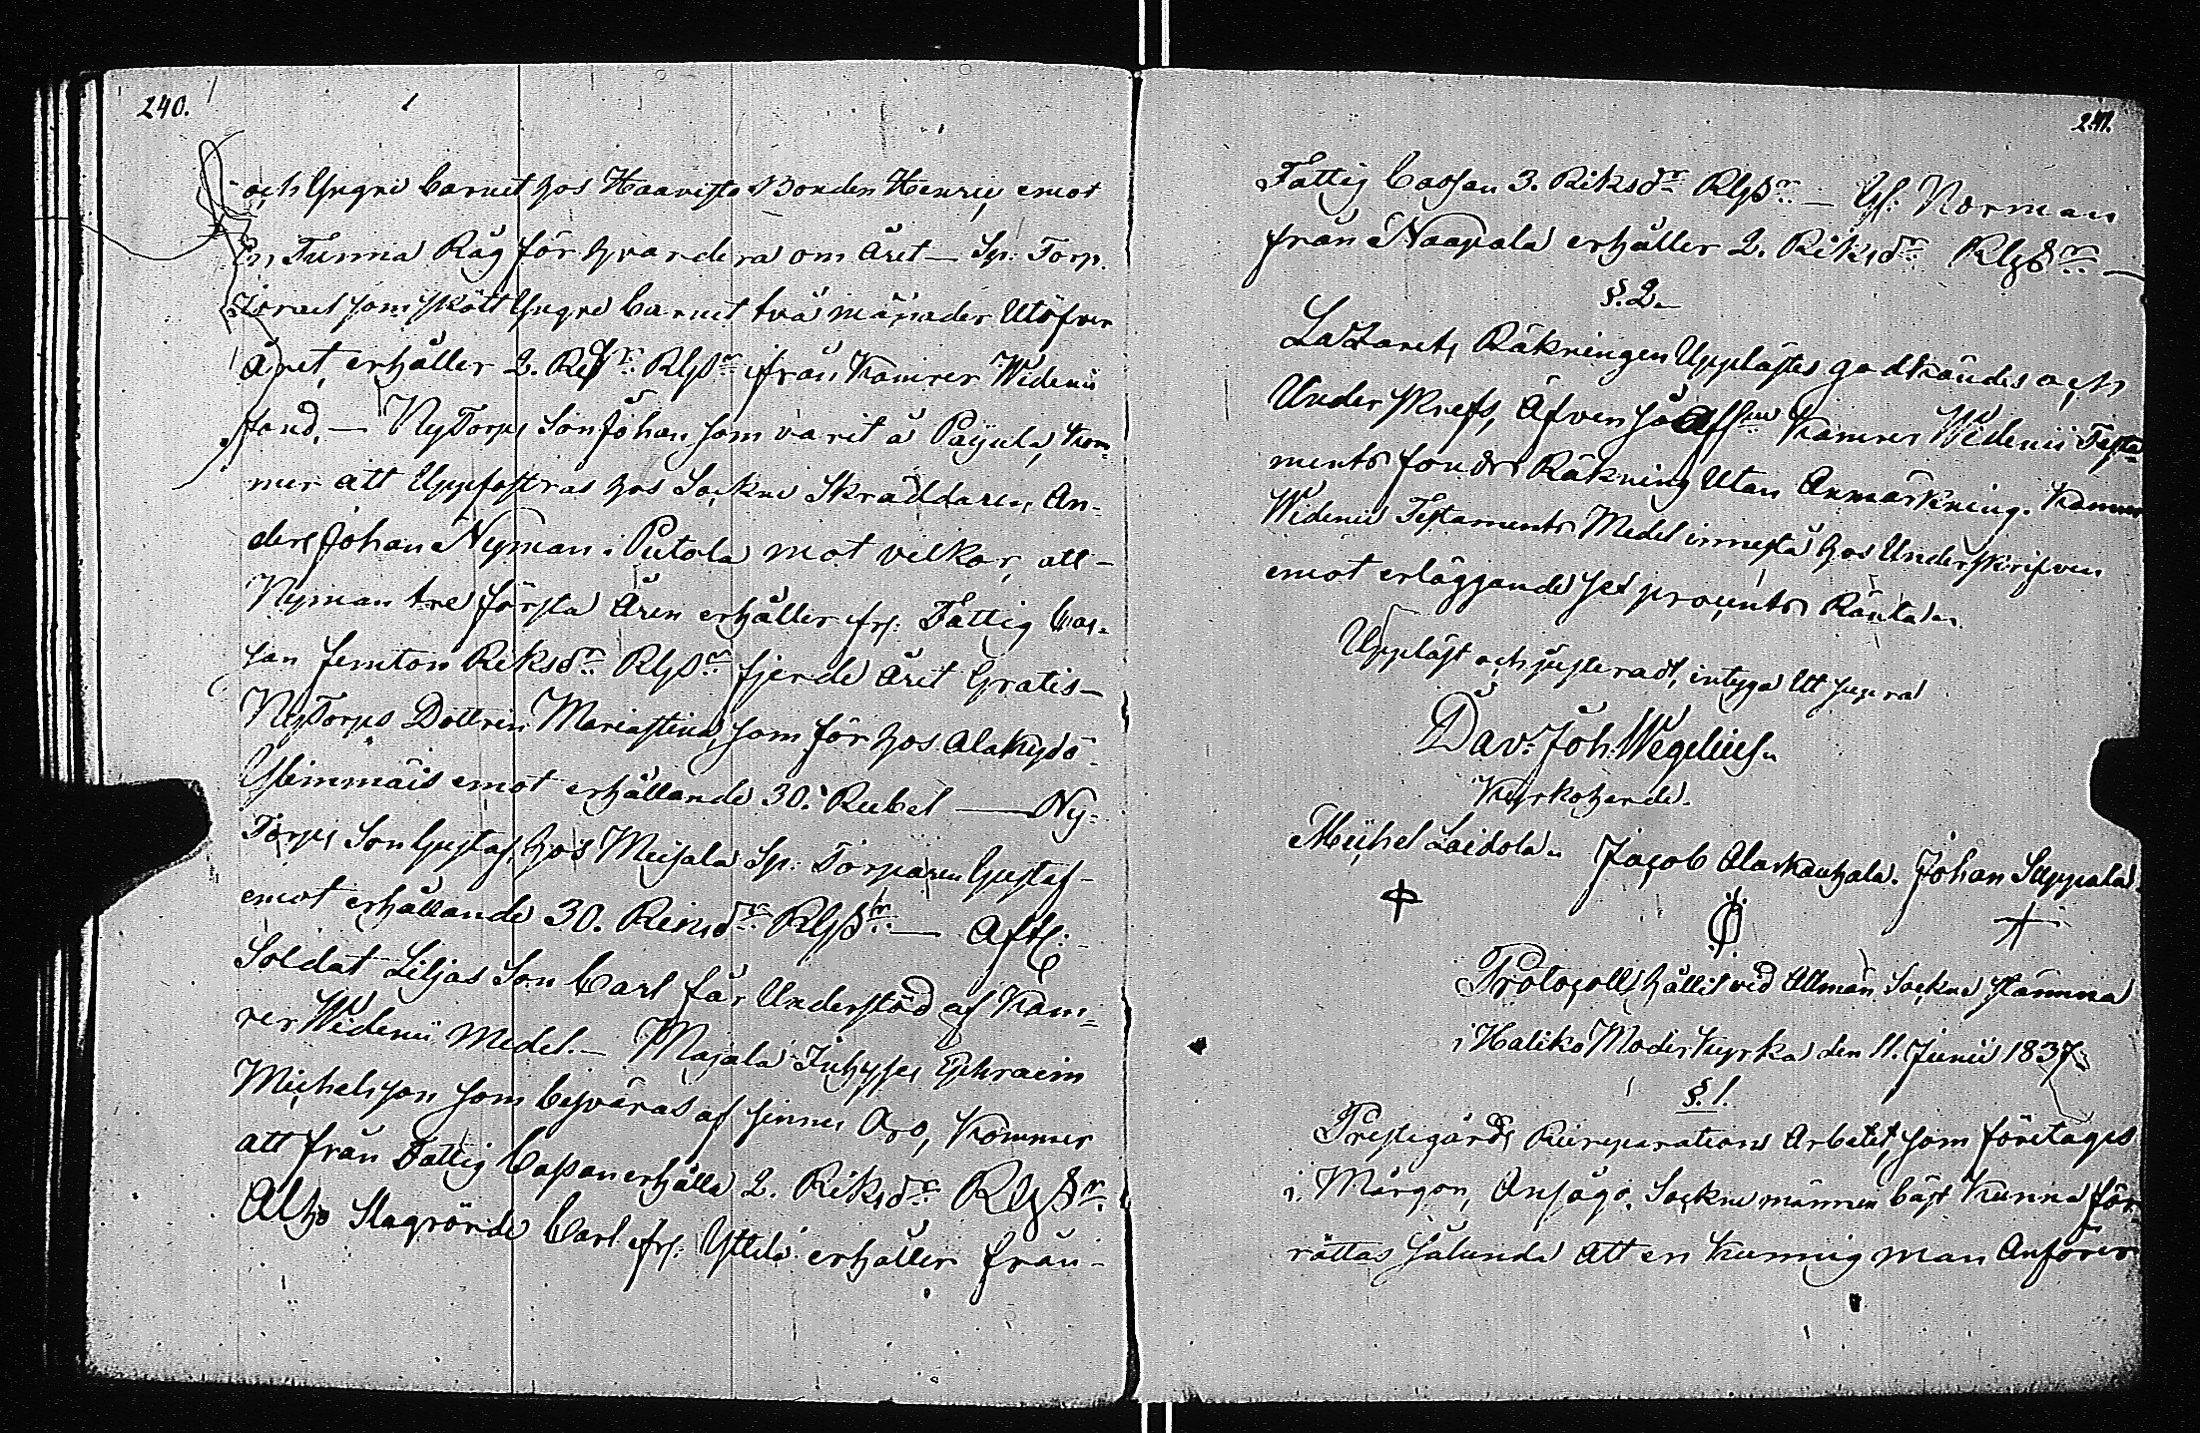 240.
och Yngre barnet hos Haavisto Bonden Henric, emot
En Tunna Råg för hvardera om Året — Sp: Torp.
som skött Yngre barnet två månader Utöfver
Året, erhåller 2. Rd:r RgS:r ifrån Kamrer Widenii
fond. — NyTorps Son Johan som varit å Päyulä, kom-
mer att Uppfostras hos Sockne Skräddaren, An-
ders Johan Nyman i Putola mot vilkor, att -
Nyman tre första Åren erhåller fr: Fattig Cas-
san femton Riksd:r RgS:r fjerde Året Gratis —
NyTorps Dottren Mariastina, som för hos Alakydö-
emot erhållande 30. Rubel — Ny-
Torps Son Gustaf, hos Meisala Sp: Torparen Gustaf -
emot erhållande 30. Riksd:r RgS:r — Afsk:
Soldat Liljas Son Carl får Understöd af Kam-
rer Widenii Medel. — Majala Inhyses Ephraim
Michelsson som besväras af sinnes Oro, kommer
att från Fattig Cassan erhålla 2. Riksd:r RgS:r
Alho Slagrörde Carl fr: Yttilä erhåller från -
241.
Fattig Cassan 3. Riksd:r RgS:r — Gl: Norman
från Naapala erhåller 2. Riksd:r RgS:r —
§. 2.
Lazarets Räkningen Upplästes godkändes och
Underskrefs, Äfven så Kamrer Widenii Testa-
ments fonds Räkning Utan Anmärkning. Kamrer
Widenii Testaments Medel innestå hos Underskrifven
emot erläggande sex procents Ränta.
Uppläst och justeradt, intyga Ut supra
Dav: Joh: Wegelius.
Kyrkoherde.
Michel Laidola. Jacob Alaskauhala. Johan Suppala.
Protocoll, hållit vid Allmän Sockne Stämma
i Haliko Moder Kyrka den 11. Junii 1837.
§. 1.
Prestegårds Reperations Arbetet, som företages
i Morgon, Ansågo Sockne männen bäst kunna för-
rättas sålunda att en kunnig man Anförer